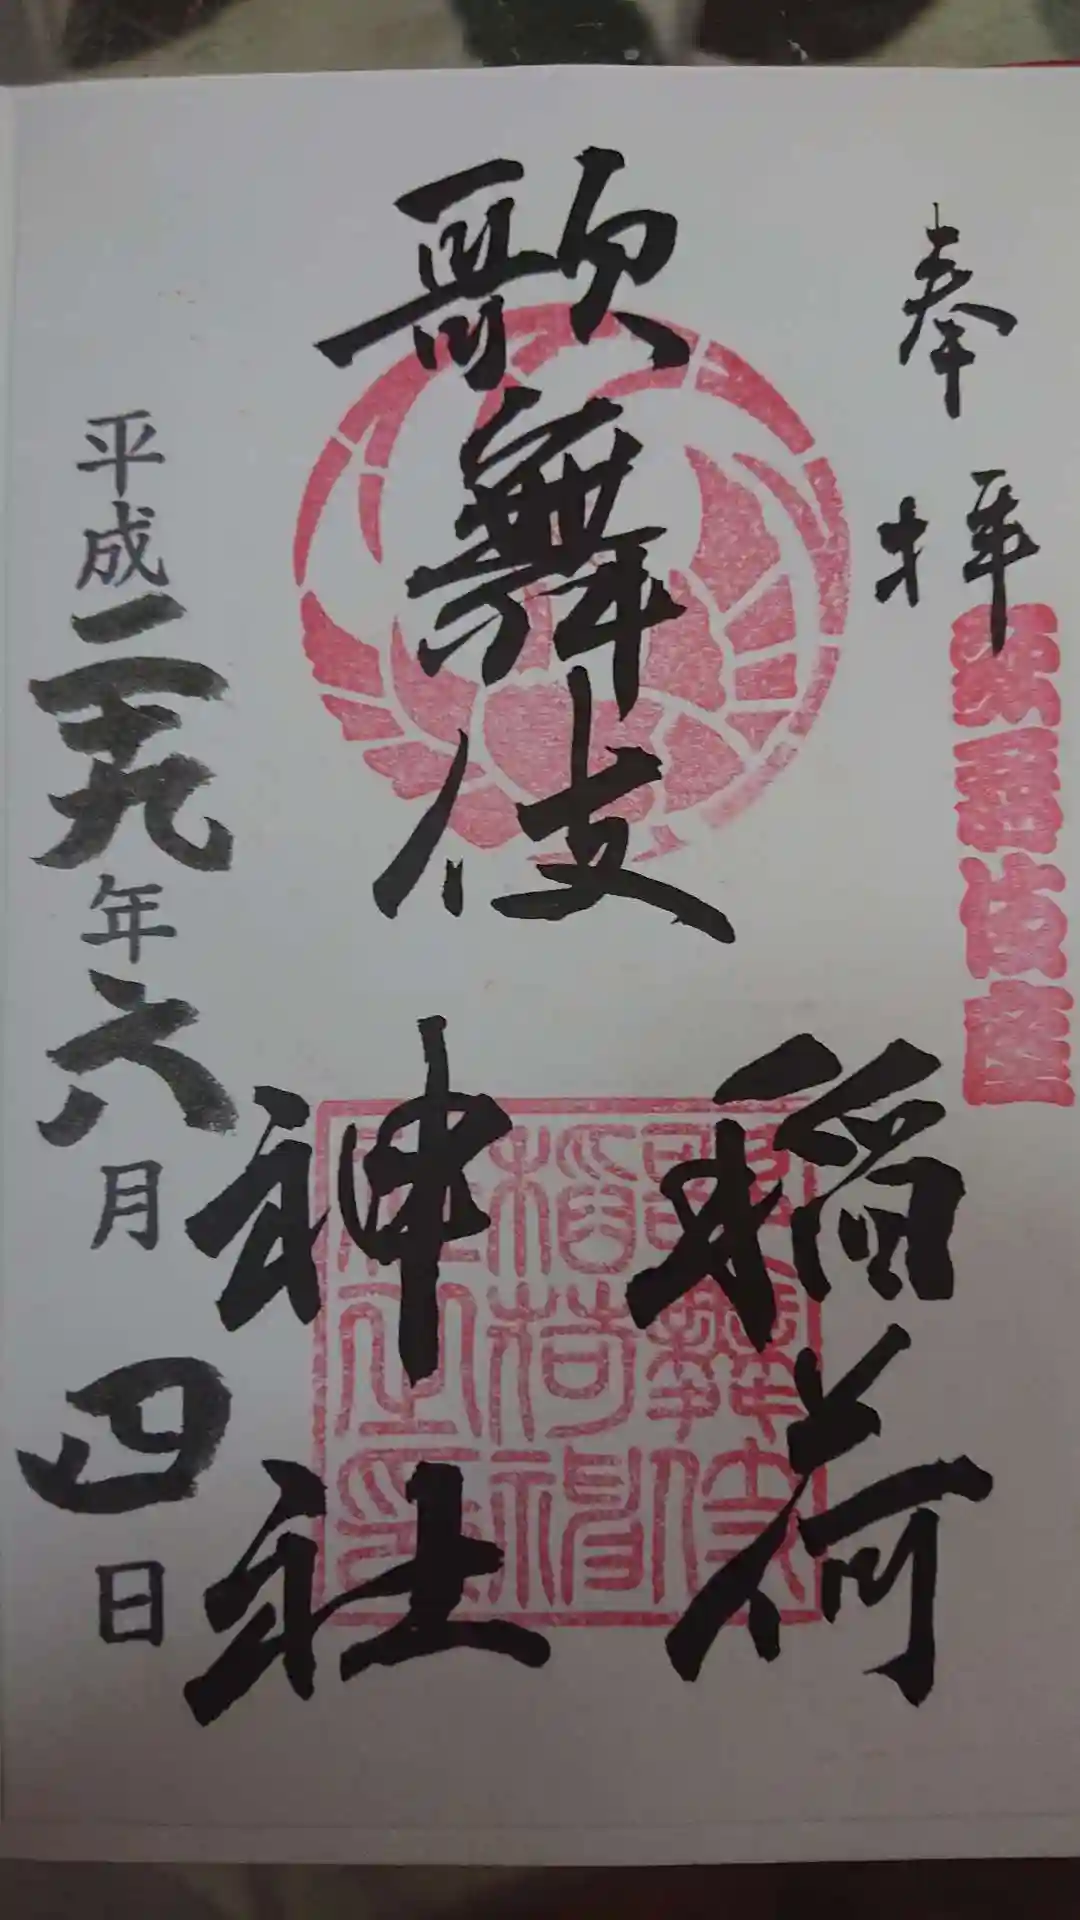 奉拝
歌舞伎座
歌舞伎
稲荷
神社
歌舞伎
稲荷神
社之印
平成二十九年六月四日